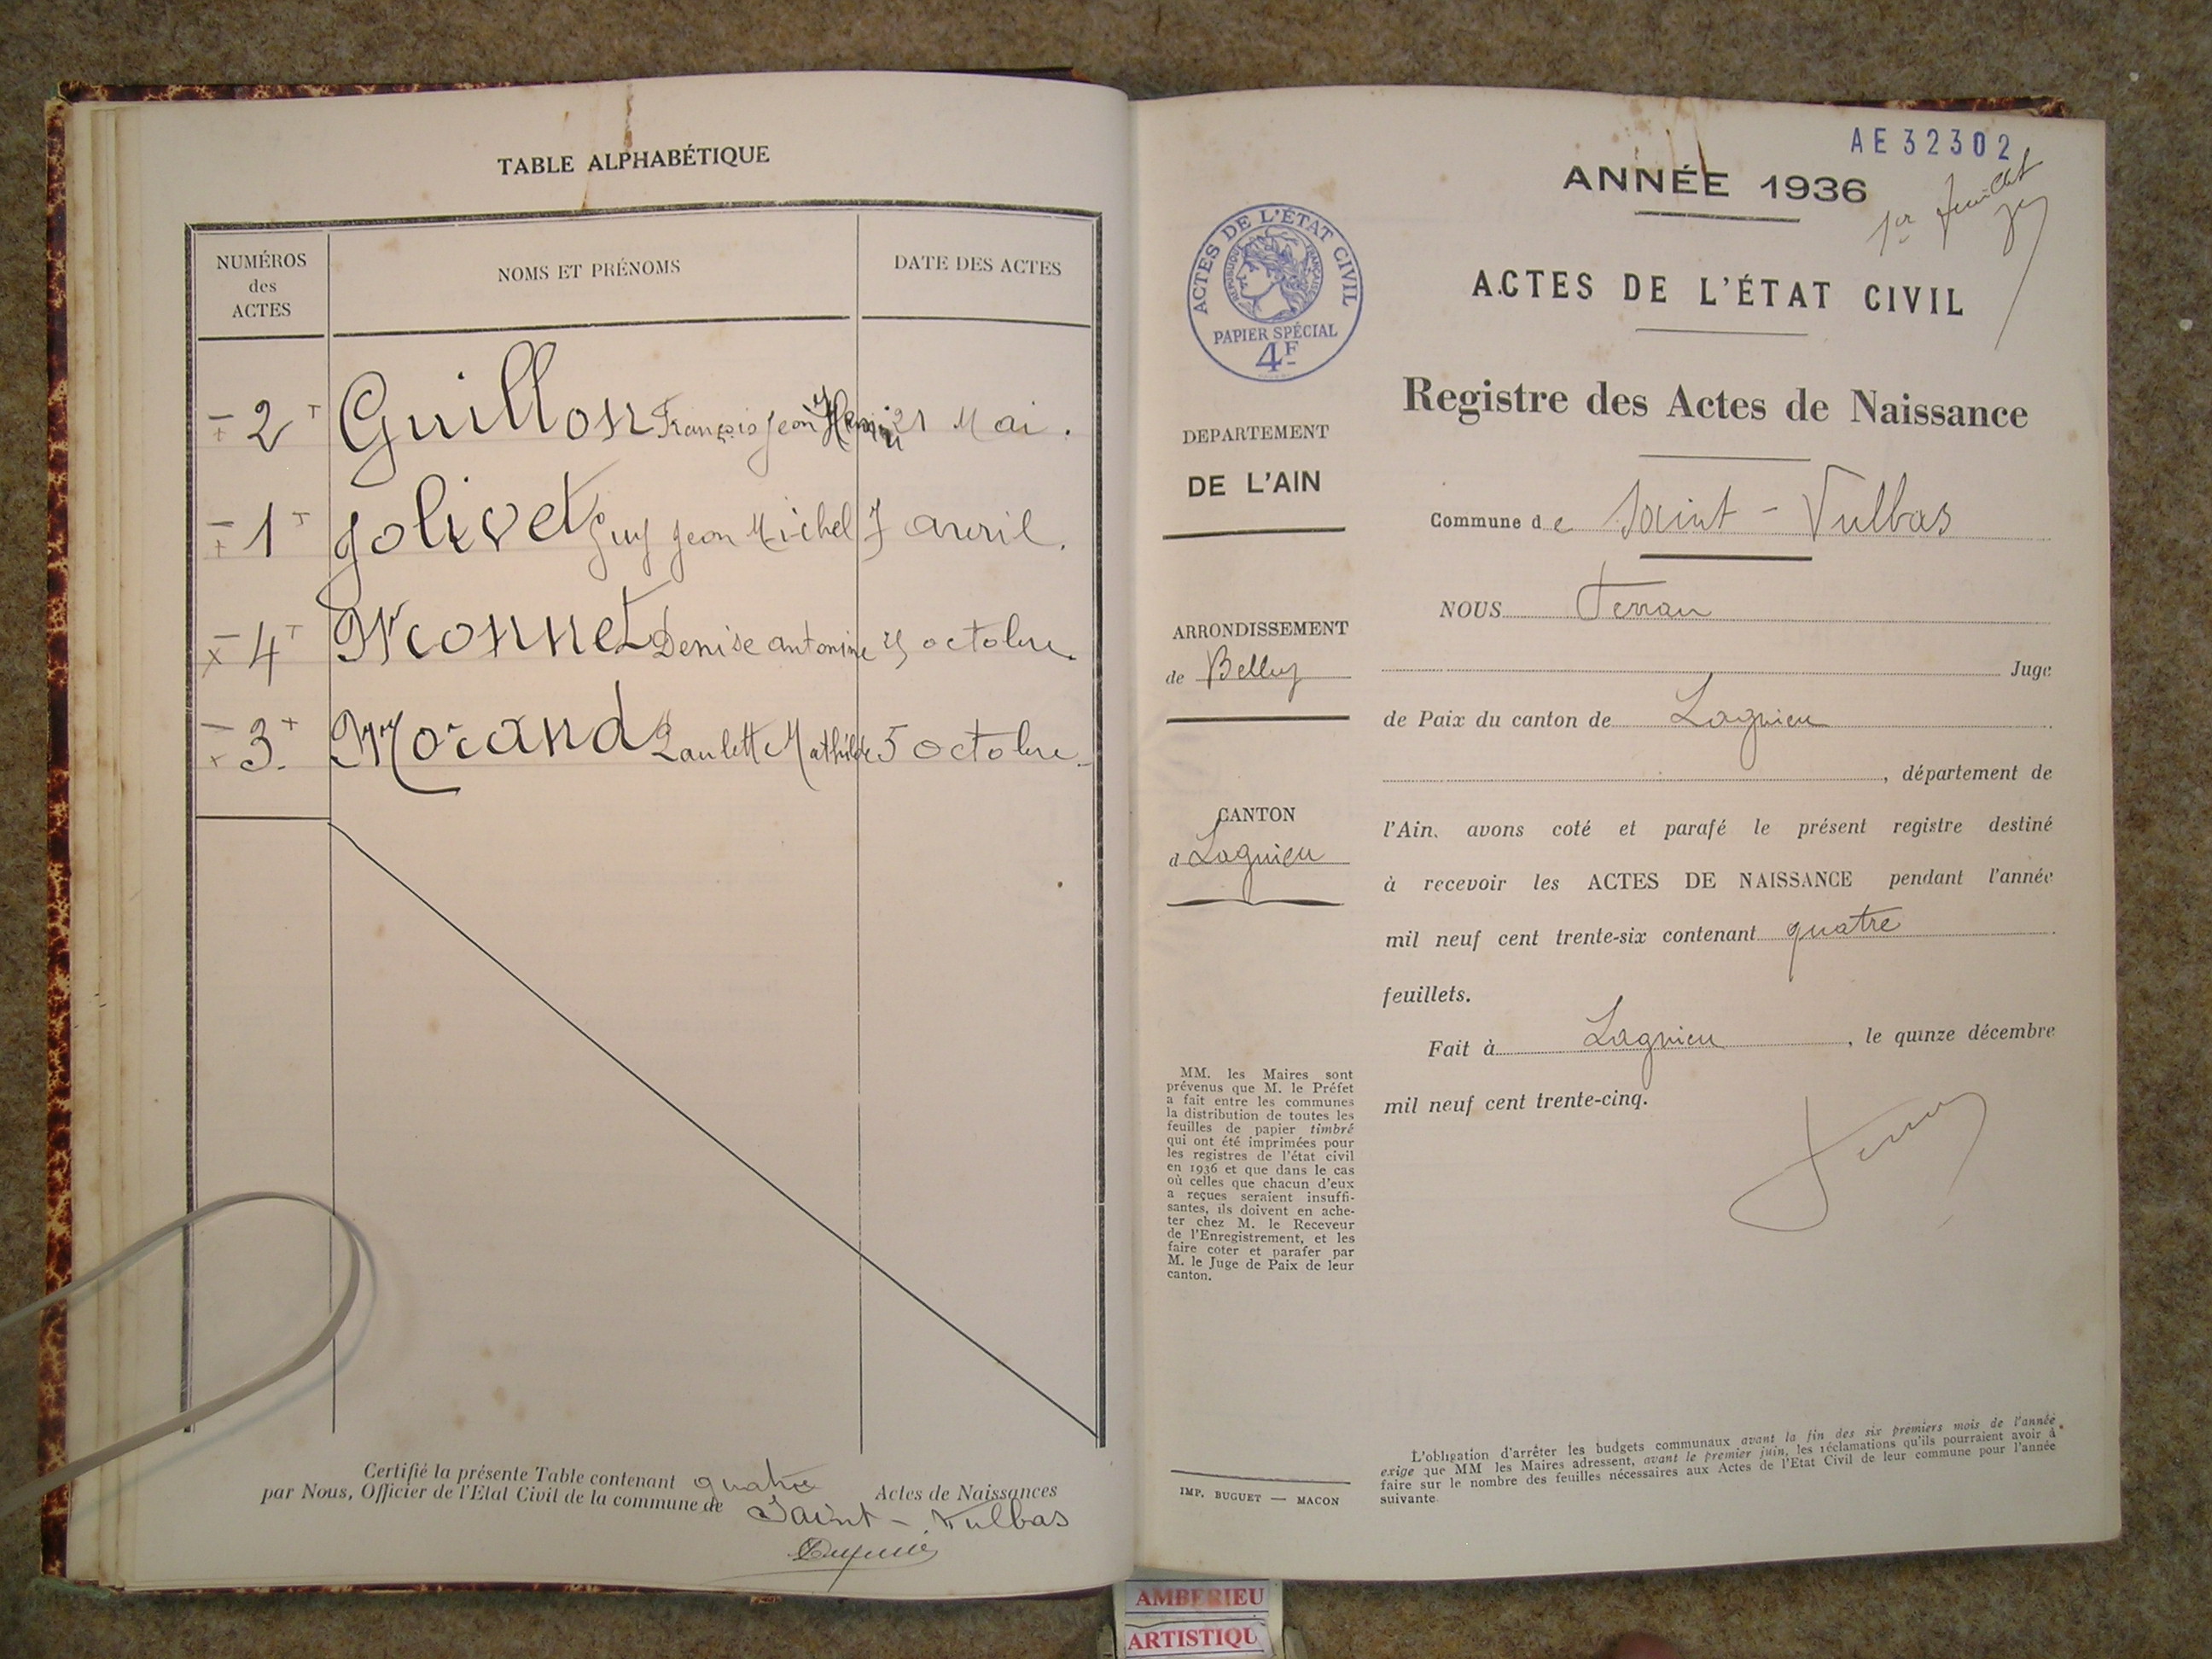 TABLE ALPHABÉTIQUE
NUMÉROS
des
ACTES
NOMS ET PRÉNOMS
DATE DES ACTES
2 Guillon François Jean Henri 21 Mai.
1 Jolivet Guy Jean Michel 7 avril.
4 Monnet Denise antonine octobre.
3 Morand Paulette Mathilde 5 octobre.
Certifié la présente Table contenant quatre Actes de Naissances
par Nous, Officier de l'Etat Civil de la commune de Saint-Vulbas
AE32302
ANNÉE 1936
1er feuillet
ACTES DE L'ÉTAT CIVIL
RÉPUBLIQUE FRANÇAISE
PAPIER SPÉCIAL
4F
ACTES DE L'ÉTAT CIVIL
Registre des Actes de Naissance
DEPARTEMENT
DE L'AIN
Commune de Saint-Vulbas
ARRONDISSEMENT
de Belley
CANTON
d Lagnieu
NOUS
Juge
de Paix du canton de Lagnieu
, département de
l'Ain, avons coté et parafé le présent registre destiné
à recevoir les ACTES DE NAISSANCE pendant l'année
mil neuf cent trente-six contenant quatre
feuillets.
Fait à Lagnieu, le quinze décembre
mil neuf cent trente-cinq.
MM. les Maires sont
prévenus que M. le Préfet
a fait entre les communes
la distribution de toutes les
feuilles de papier timbré
qui ont été imprimées pour
les registres de l'état civil
en 1936 et que dans le cas
où celles que chacun d'eux
a reçues seraient insuffi-
santes, ils doivent en ache-
ter chez M. le Receveur
de l'Enregistrement, et les
faire coter et parafer par
M. le Juge de Paix de leur
canton.
IMP. BUGUET — MACON
L'obligation d'arrêter les budgets communaux avant la fin des six premiers mois de l'année
exige que MM les Maires adressent, avant le premier juin, les réclamations qu'ils pourraient avoir à
faire sur le nombre des feuilles nécessaires aux Actes de l'Etat Civil de leur commune pour l'année
suivante.
AMBERIEU
ARTISTIQU